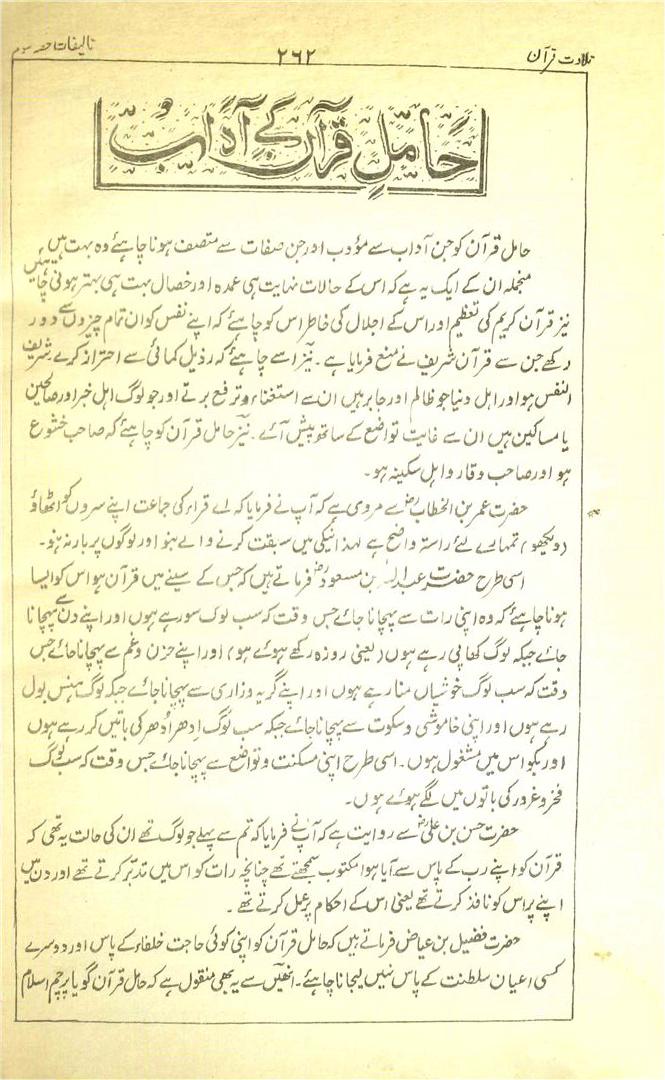 تلاوت قرآن
۲۶۲
تالیفات حصہ سوم
حامل قرآن کے آداب
حامل قرآن کو جن آداب سے مؤدب اور جن صفات سے متصف ہونا چاہئے وہ بہت ہیں
منجملہ ان کے ایک یہ ہے کہ اس کے حالات نہایت ہی عمدہ اور خصال بہت ہی بہتر ہونی چاہئیں
نیز قرآن کریم کی تعظیم اور اس کے اجلال کی خاطر اس کو چاہئے کہ اپنے نفس کو ان تمام چیزوں سے دور
رکھے جن سے قرآن شریف نے منع فرمایا ہے۔ نیز اسے چاہئے کہ رذیل کمائی سے احتراز کرے شریف
النفس ہو اور اہل دنیا جو ظالم اور جابر ہیں ان سے استغناء و ترفع برتے اور جو لوگ اہل خیر اور صالحین
یا مساکین ہیں ان سے غایت تواضع کے ساتھ پیش آئے۔ نیز حامل قرآن کو چاہئے کہ صاحب خشوع
ہو اور صاحب وقار و اہل سکینہ ہو۔
حضرت عمر بن الخطابؓ سے مروی ہے کہ آپ نے فرمایا کہ اے قراء کی جماعت اپنے سروں کو اٹھاؤ
(دیکھو) تمہارے لئے راستہ واضح ہے لہذا نیکی میں سبقت کرنے والے بنو اور لوگوں پر بار نہ بنو۔
اسی طرح حضرت عبداللہ بن مسعودؓ فرماتے ہیں کہ جس کے سینے میں قرآن ہو اس کو ایسا
ہونا چاہئے کہ وہ اپنی رات سے پہچانا جائے جس وقت کہ سب لوگ سو رہے ہوں اور اپنے دن سے پہچانا
جائے جبکہ لوگ کھا پی رہے ہوں (یعنی روزہ رکھے ہوئے ہو) اور اپنے حزن و غم سے پہچانا جائے جس
وقت کہ سب لوگ خوشیاں منا رہے ہوں اور اپنے گریہ و زاری سے پہچانا جائے جبکہ لوگ ہنس بول
رہے ہوں اور اپنی خاموشی و سکوت سے پہچانا جائے جبکہ سب لوگ ادھر اُدھر کی باتیں کر رہے ہوں
اور بکواس میں مشغول ہوں۔ اسی طرح اپنی مسکنت و تواضع سے پہچانا جائے جس وقت کہ سب لوگ
فخر و غرور کی باتوں میں لگے ہوئے ہوں۔
حضرت حسن بن علیؓ سے روایت ہے کہ آپ نے فرمایا کہ تم سے پہلے جو لوگ تھے ان کی حالت یہ تھی کہ
قرآن کو اپنے رب کے پاس سے آیا ہوا مکتوب سمجھتے تھے چنانچہ رات کو اس میں تدبر کرتے تھے اور دن میں
اپنے پر اس کو نافذ کرتے تھے یعنی اس کے احکام پر عمل کرتے تھے۔
حضرت فضیل بن عیاض فرماتے ہیں کہ حامل قرآن کو اپنی کوئی حاجت خلفاء کے پاس اور دوسرے
کسی اعیان سلطنت کے پاس نہیں لیجانا چاہئے۔ انھیں سے یہ بھی منقول ہے کہ حامل قرآن گویا پرچم اسلام